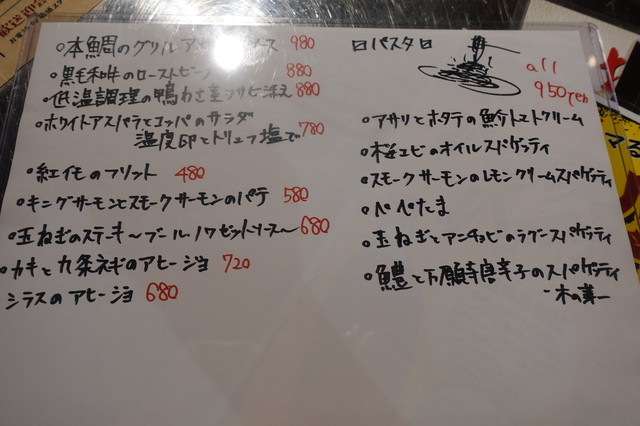 ○本鯛のグリル ース 980
○黒毛和牛のローストビーフ 880
○低温調理の鴨わさ 添え 880
○ホワイトアスパラとコッパのサラダ
温度卵とトリュフ塩で 780
○紅イモのフリット 480
○キングサーモンとスモークサーモンのパテ 580
○玉ねぎのステーキ〜ブールノワゼットソース〜 680
○カキと九条ネギのアヒージョ 720
シラスのアヒージョ 680
ロパスタロ
all
950yen
○アサリとホタテの魚介トマトクリーム
○桜エビのオイルスパゲッティ
○スモークサーモンのレモンクリームスパゲッティ
○ペペたま
○玉ねぎとアンチョビのラグースパゲッティ
○鱧と万願寺唐辛子のスパゲッティ